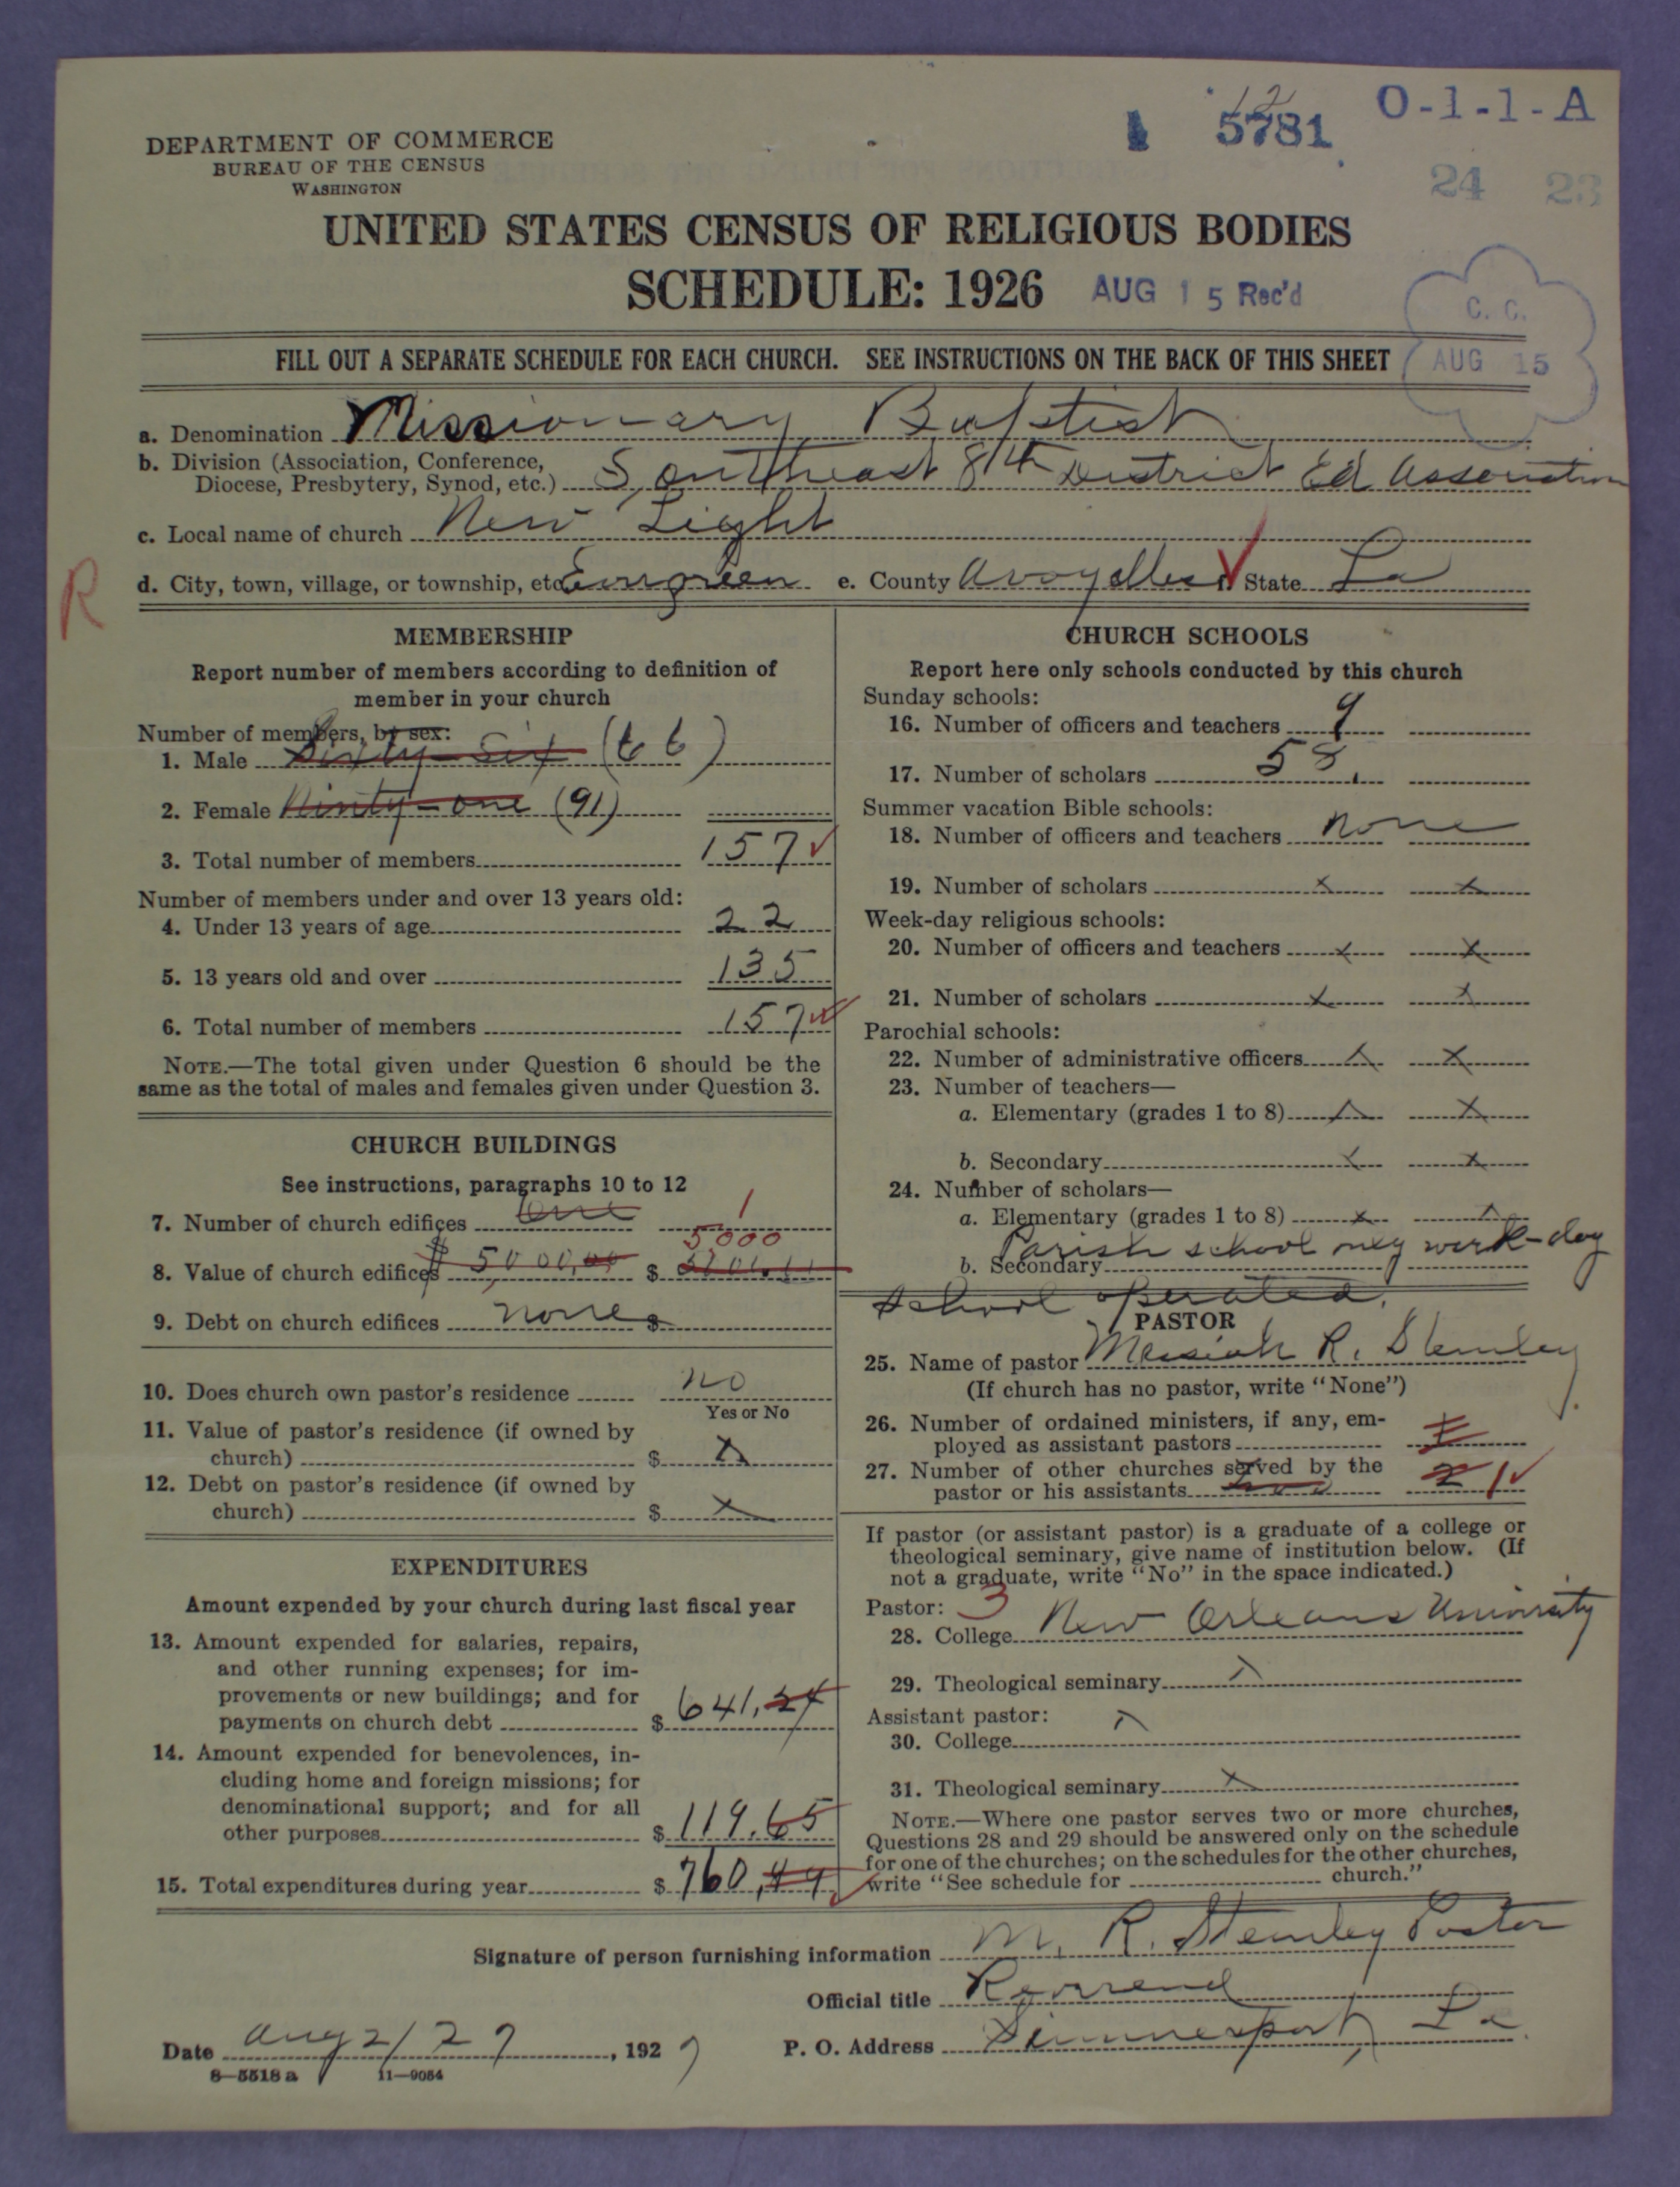 12
5781 O-1-1-A
24 23
DEPARTMENT OF COMMERCE
BUREAU OF THE CENSUS
WASHINGTON
UNITED STATES CENSUS OF RELIGIOUS BODIES
SCHEDULE: 1926 AUG 15 Rec'd
C. C.
AUG 15
FILL OUT A SEPARATE SCHEDULE FOR EACH CHURCH. SEE INSTRUCTIONS ON THE BACK OF THIS SHEET
a. Denomination Missionary Baptist
b. Division (Association, Conference,
Diocese, Presbytery, Synod, etc.) Southeast 8th District Ed Association
c. Local name of church New Light
R
d. City, town, village, or township, etc. Evergreen e. County Avoyelles f. State La
MEMBERSHIP
Report number of members according to definition of
member in your church
Number of members, by sex:
1. Male Sixty-Six (66)
2. Female Ninty-one (91)
3. Total number of members 157
Number of members under and over 13 years old:
4. Under 13 years of age 22
5. 13 years old and over 135
6. Total number of members 157
NOTE.—The total given under Question 6 should be the
same as the total of males and females given under Question 3.
CHURCH BUILDINGS
See instructions, paragraphs 10 to 12
7. Number of church edifices One 1
5000
8. Value of church edifices $ 5000,00 $
9. Debt on church edifices none $
10. Does church own pastor's residence no
Yes or No
11. Value of pastor's residence (if owned by
church) $ x
12. Debt on pastor's residence (if owned by
church) $ x
EXPENDITURES
Amount expended by your church during last fiscal year
13. Amount expended for salaries, repairs,
and other running expenses; for im-
provements or new buildings; and for
payments on church debt $ 641,24
14. Amount expended for benevolences, in-
cluding home and foreign missions; for
denominational support; and for all
other purposes $ 119.65
15. Total expenditures during year $ 760,
CHURCH SCHOOLS
Report here only schools conducted by this church
Sunday schools:
16. Number of officers and teachers 9
17. Number of scholars 58
Summer vacation Bible schools:
18. Number of officers and teachers none
19. Number of scholars x x
Week-day religious schools:
20. Number of officers and teachers x x
21. Number of scholars x x
Parochial schools:
22. Number of administrative officers x x
23. Number of teachers—
a. Elementary (grades 1 to 8) x x
b. Secondary x x
24. Number of scholars—
a. Elementary (grades 1 to 8) x x
Parish school only work-day
b. Secondary
school operated.
PASTOR
25. Name of pastor Messiah R. Stemley
(If church has no pastor, write "None")
26. Number of ordained ministers, if any, em-
ployed as assistant pastors
27. Number of other churches served by the
pastor or his assistants two 2 1
If pastor (or assistant pastor) is a graduate of a college or
theological seminary, give name of institution below. (If
not a graduate, write "No" in the space indicated.)
Pastor: 3
28. College New Orleans University
29. Theological seminary x
Assistant pastor:
30. College x
31. Theological seminary x
NOTE.—Where one pastor serves two or more churches,
Questions 28 and 29 should be answered only on the schedule
for one of the churches; on the schedules for the other churches,
write "See schedule for church."
Signature of person furnishing information M. R. Stemley Pastor
Official title Reverend
Date Aug 2/27, 1927 P. O. Address Simmesport, La.
8—5518 a 11—9054